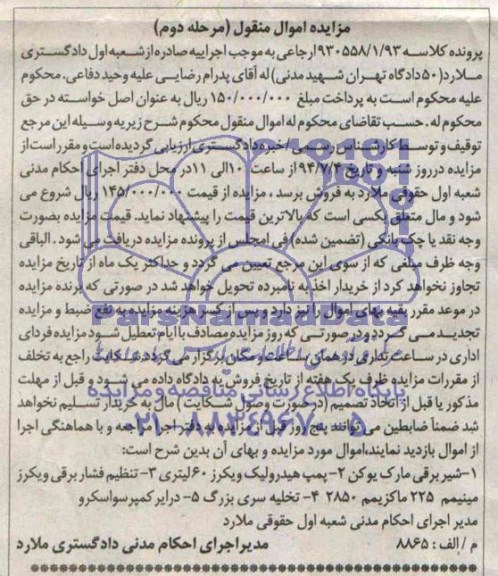 مزایده اموال منقول (مرحله دوم)
پرونده کلاسه ۹۳۰۵۵۸/۱/۹۳ ارجاعی به موجب اجراییه صادره از شعبه اول دادگستری
ملارد (۵۰ دادگاه تهران شهید مدنی) له آقای پدرام رضایی علیه وحید دفاعی. محکوم
علیه محکوم است به پرداخت مبلغ ۱۵۰/۰۰۰/۰۰۰ ریال به عنوان اصل خواسته در حق
محکوم له. حسب تقاضای محکوم له اموال منقول محکوم شرح زیر به وسیله این مرجع
توقیف و توسط کارشناس رسمی/خبره دادگستری ارزیابی گردیده است و مقرر است از
مزایده در روز شنبه و تاریخ ۹۴/۷/۴ از ساعت ۱۰ الی ۱۱ در محل دفتر اجرای احکام مدنی
شعبه اول حقوقی ملارد به فروش برسد، مزایده از قیمت ۱۴۵/۰۰۰/۰۰۰ ریال شروع می
شود و مال متعلق بکسی است که بالاترین قیمت را پیشنهاد نماید. قیمت مزایده بصورت
وجه نقد یا چک بانکی (تضمین شده) فی امجلس از پرونده مزایده دریافت می شود. الباقی
وجه ظرف مبلغی که از سوی این مرجع تعیین می گردد و حداکثر یک ماه از تاریخ مزایده
تجاوز نخواهد کرد از خریدار اخذ به نامبرده تحویل خواهد شد در صورتی که برنده مزایده
در موعد مقرر بقیه بهای اموال را نپردازد وپس از کسر هزینه مزایده به نفع ضبط و مزایده
تجدید می گردد و در صورتی که روز مزایده مصادف با ایام تعطیل شود مزایده فردای
اداری در ساعت تداری در همان ساعت و مکان برگزار می گردد. شکایت راجع به تخلف
از مقررات مزایده ظرف یک هفته از تاریخ فروش به دادگاه داده می شود و قبل از مهلت
مذکور یا قبل از اتخاذ تصمیم (در صورت وصول شکایت) مال به خریدار تسلیم نخواهد
شد ضمناً ضابطین می توانند پنج روز قبل از مزایده به دفتر اجرا مراجعه و با هماهنگی اجرا
از اموال بازدید نمایند، اموال مورد مزایده و بهای آن بدین شرح است:
۱- شیر برقی مارک یوکن ۲- پمپ هیدرولیک ویکرز ۶۰ لیتری ۳- تنظیم فشار برقی ویکرز
مینیمم ۲۲۵ ماکزیمم ۲۸۵۰ ۴- تخلیه سری بزرگ ۵- درایر کمپرسواسکرو
مدیر اجرای احکام مدنی شعبه اول حقوقی ملارد
م / الف: ۸۸۶۵ مدیر اجرای احکام مدنی دادگستری ملارد
ParsNamadData
پایگاه اطلاع رسانی مناقصه و مزایده
۰۲۱-۸۸۳۴۹۶۷۰-۵